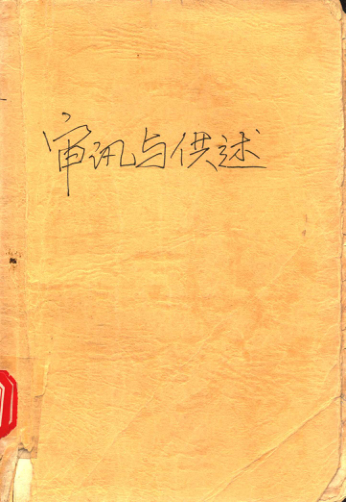 审讯与供述